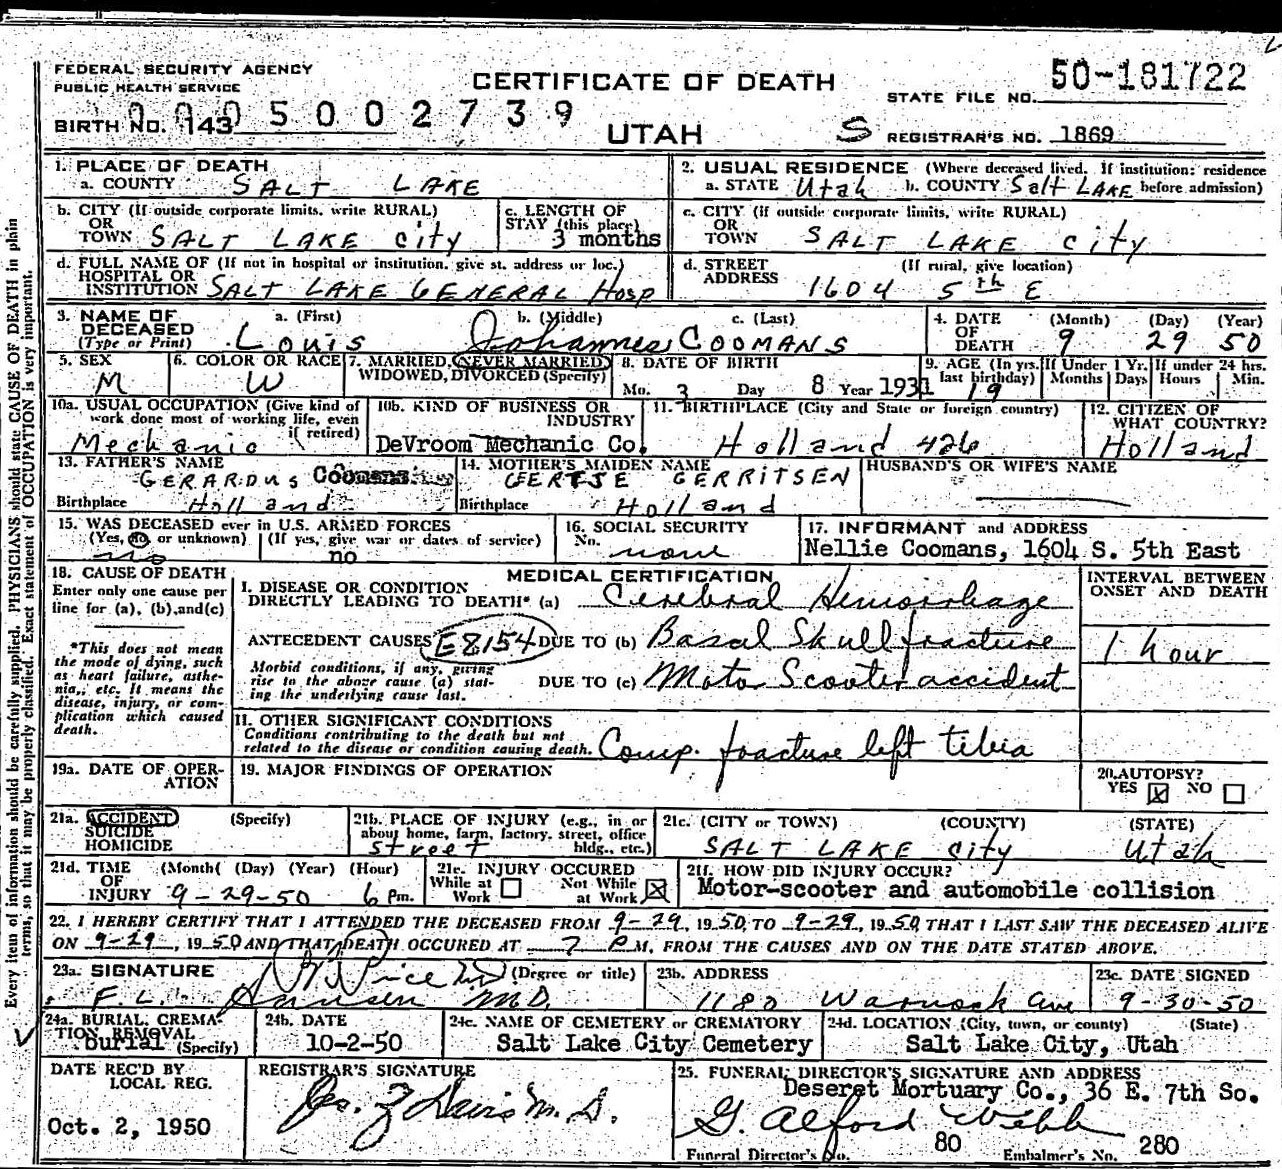 FEDERAL SECURITY AGENCY
PUBLIC HEALTH SERVICE
CERTIFICATE OF DEATH
STATE FILE NO. 50-181722
0005002739
BIRTH NO. 143
UTAH
S REGISTRAR'S NO. 1869
1. PLACE OF DEATH
a. COUNTY SALT LAKE
2. USUAL RESIDENCE (Where deceased lived. If institution: residence
a. STATE Utah b. COUNTY Salt LAKE before admission)
b. CITY (If outside corporate limits, write RURAL)
OR
TOWN SALT LAKE City
c. LENGTH OF
STAY (this place)
3 months
c. CITY (if outside corporate limits, write RURAL)
OR
TOWN SALT LAKE City
d. FULL NAME OF (If not in hospital or institution, give st. address or loc.)
HOSPITAL OR
INSTITUTION SALT LAKE GENERAL Hosp
d. STREET (If rural, give location)
ADDRESS 1604 5th E
3. NAME OF a. (First) b. (Middle) c. (Last)
DECEASED
(Type or Print) Louis Johannes COOMANS
4. DATE (Month) (Day) (Year)
OF
DEATH 9 29 50
5. SEX
M
6. COLOR OR RACE
W
7. MARRIED, NEVER MARRIED,
WIDOWED, DIVORCED (Specify)
8. DATE OF BIRTH
Mo. 3 Day 8 Year 1931
9. AGE (In yrs. last birthday) 19
If Under 1 Yr. Months Days
If under 24 hrs. Hours Min.
10a. USUAL OCCUPATION (Give kind of
work done most of working life, even
if retired)
Mechanic
10b. KIND OF BUSINESS OR
INDUSTRY
DeVroom Mechanic Co.
11. BIRTHPLACE (City and State or foreign country)
Holland 426
12. CITIZEN OF
WHAT COUNTRY?
Holland
13. FATHER'S NAME
GERARDUS Coomans
Birthplace Holland
14. MOTHER'S MAIDEN NAME
GERTJE GERRITSEN
Birthplace Holland
HUSBAND'S OR WIFE'S NAME
15. WAS DECEASED ever in U.S. ARMED FORCES
(Yes, no, or unknown) (If yes, give war or dates of service)
no no
16. SOCIAL SECURITY
No. none
17. INFORMANT and ADDRESS
Nellie Coomans, 1604 S. 5th East
18. CAUSE OF DEATH
Enter only one cause per
line for (a), (b), and (c)
*This does not mean
the mode of dying, such
as heart failure, asthe-
nia, etc. It means the
disease, injury, or com-
plication which caused
death.
MEDICAL CERTIFICATION
I. DISEASE OR CONDITION
DIRECTLY LEADING TO DEATH* (a) Cerebral Hemorrhage
ANTECEDENT CAUSES E8154 DUE TO (b) Basal Skull fracture
Morbid conditions, if any, giving
rise to the above cause (a) stat-
ing the underlying cause last.
DUE TO (c) Motor Scooter accident
INTERVAL BETWEEN
ONSET AND DEATH
1 hour
II. OTHER SIGNIFICANT CONDITIONS
Conditions contributing to the death but not
related to the disease or condition causing death. Comp. fracture left tibia
19a. DATE OF OPER-
ATION
19. MAJOR FINDINGS OF OPERATION
20. AUTOPSY?
YES ☒ NO ☐
21a. ACCIDENT (Specify)
SUICIDE
HOMICIDE
21b. PLACE OF INJURY (e.g., in or
about home, farm, factory, street, office
bldg., etc.)
street
21c. (CITY or TOWN) (COUNTY) (STATE)
SALT LAKE City Utah
21d. TIME (Month) (Day) (Year) (Hour)
OF
INJURY 9-29-50 6 Pm.
21e. INJURY OCCURED
While at Work ☐ Not While at Work ☒
21f. HOW DID INJURY OCCUR?
Motor-scooter and automobile collision
22. I HEREBY CERTIFY THAT I ATTENDED THE DECEASED FROM 9-29, 1950, TO 9-29, 1950, THAT I LAST SAW THE DECEASED ALIVE
ON 9-29, 1950 AND THAT DEATH OCCURED AT 7 P M, FROM THE CAUSES AND ON THE DATE STATED ABOVE.
23a. SIGNATURE Price MD (Degree or title)
F. L. Hansen M.D.
23b. ADDRESS
1180 Warnock Ave
23c. DATE SIGNED
9-30-50
24a. BURIAL, CREMA-
TION REMOVAL
Burial (Specify)
24b. DATE
10-2-50
24c. NAME OF CEMETERY or CREMATORY
Salt Lake City Cemetery
24d. LOCATION (City, town, or county) (State)
Salt Lake City, Utah
DATE REC'D BY
LOCAL REG.
Oct. 2, 1950
REGISTRAR'S SIGNATURE
Jos. Z Davis M.D.
25. FUNERAL DIRECTOR'S SIGNATURE AND ADDRESS
Deseret Mortuary Co., 36 E. 7th So.
G. Alford Webb
Funeral Director's No. 80 Embalmer's No. 280
Every item of information should be carefully supplied. PHYSICIANS should state CAUSE OF DEATH in plain
terms, so that it may be properly classified. Exact statement of OCCUPATION is very important.